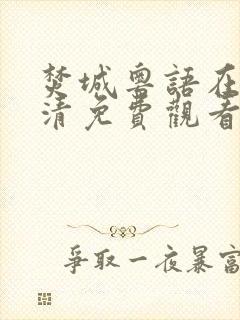 焚城粵語在
清免費觀看
爭取一夜暴富